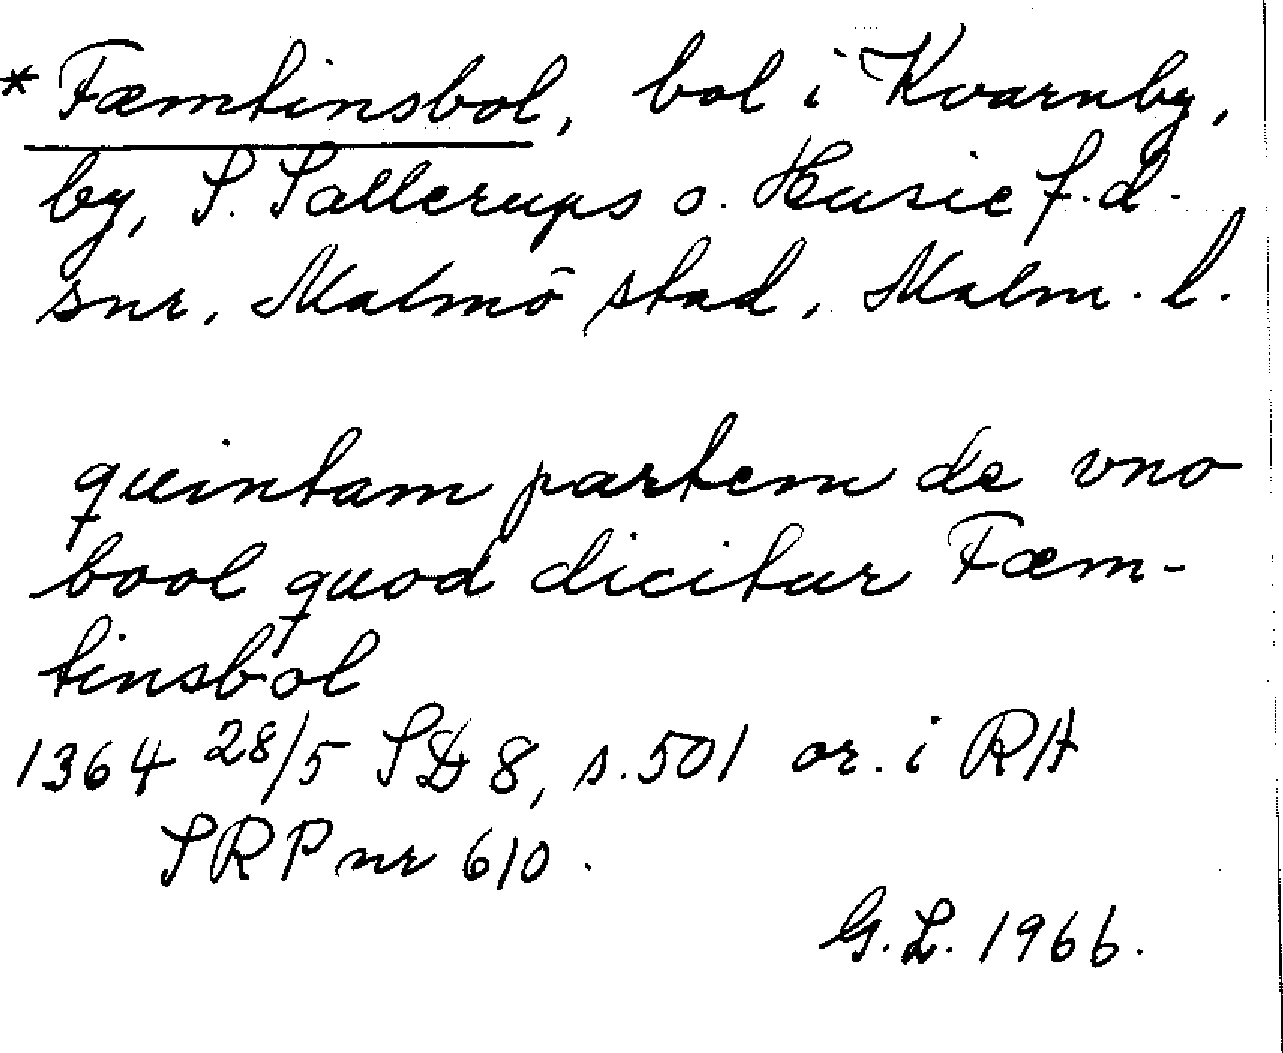 * Fæmtinsbol, bol i Kvarnby,
by, S. Sallerups o. Husie f.d.
snr, Malmö stad, Malm. l.
quintam partem de vno
bool quod dicitur Fæm-
tinsbol
1364 28/5 SD 8, s. 501 or. i RA
SRP nr 610.
G.L. 1966.